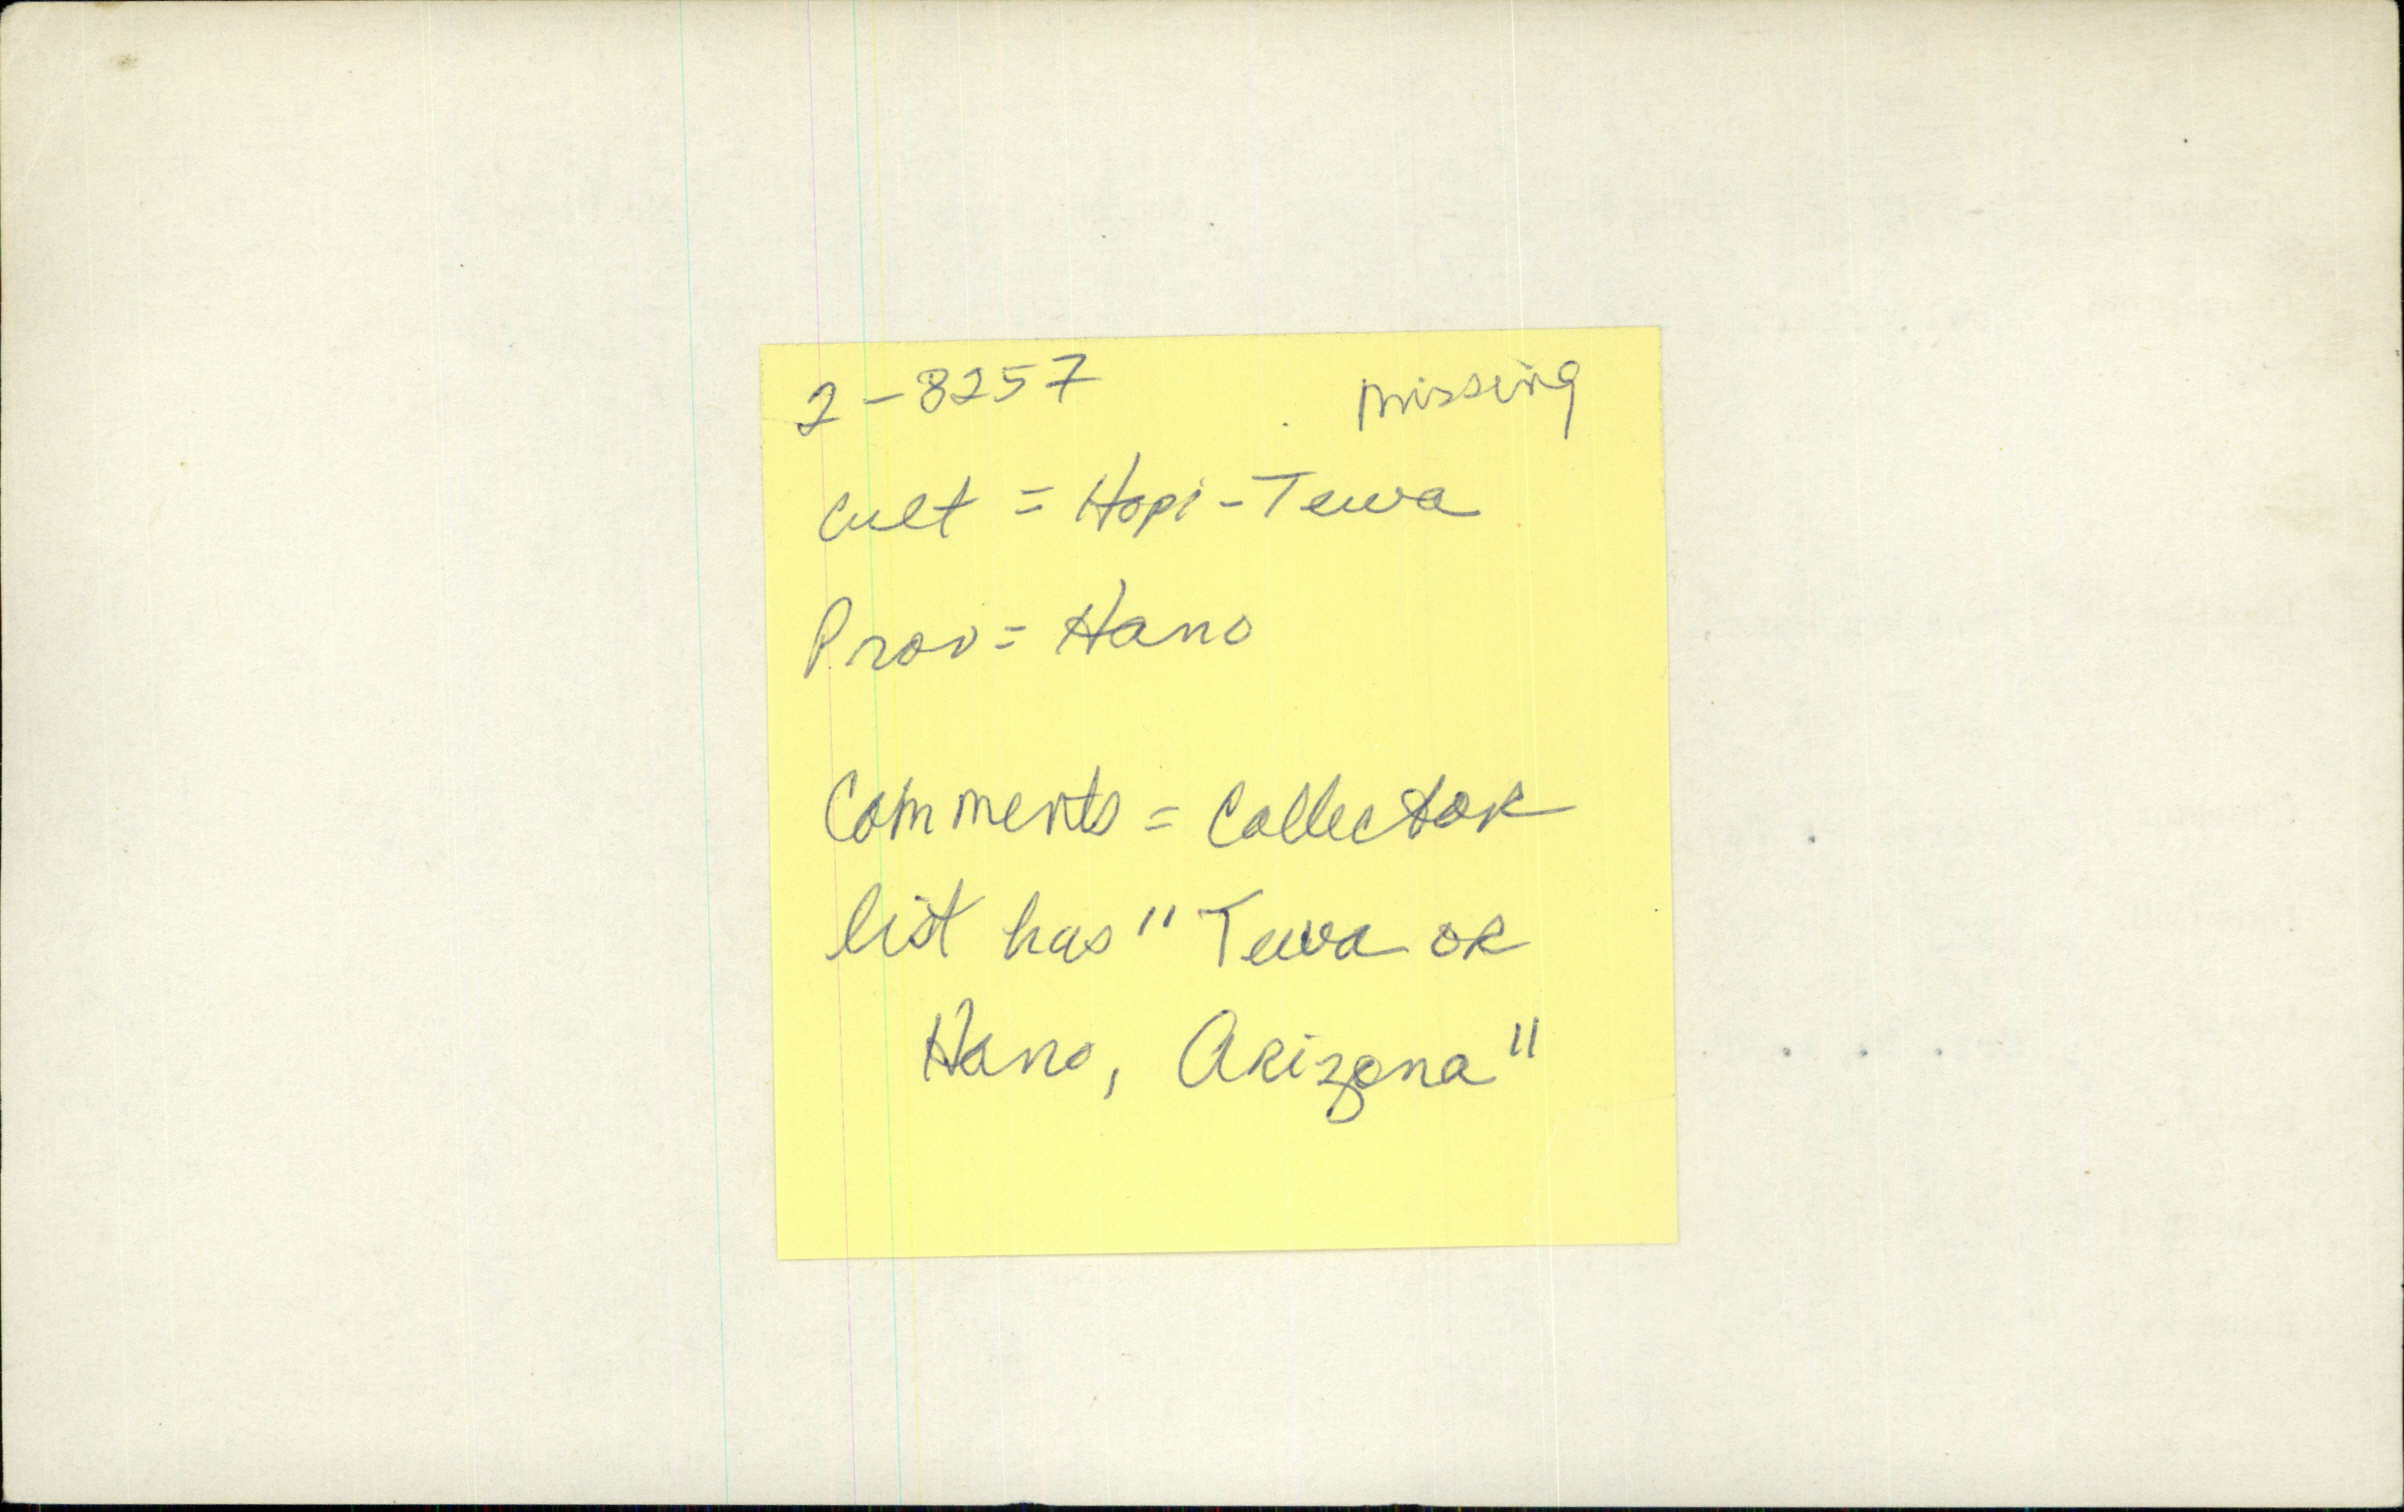 2-8257 missing
Cult = Hopi-Tewa
Prov = Hano
Comments = Collector
list has "Tewa or
Hano, Arizona"